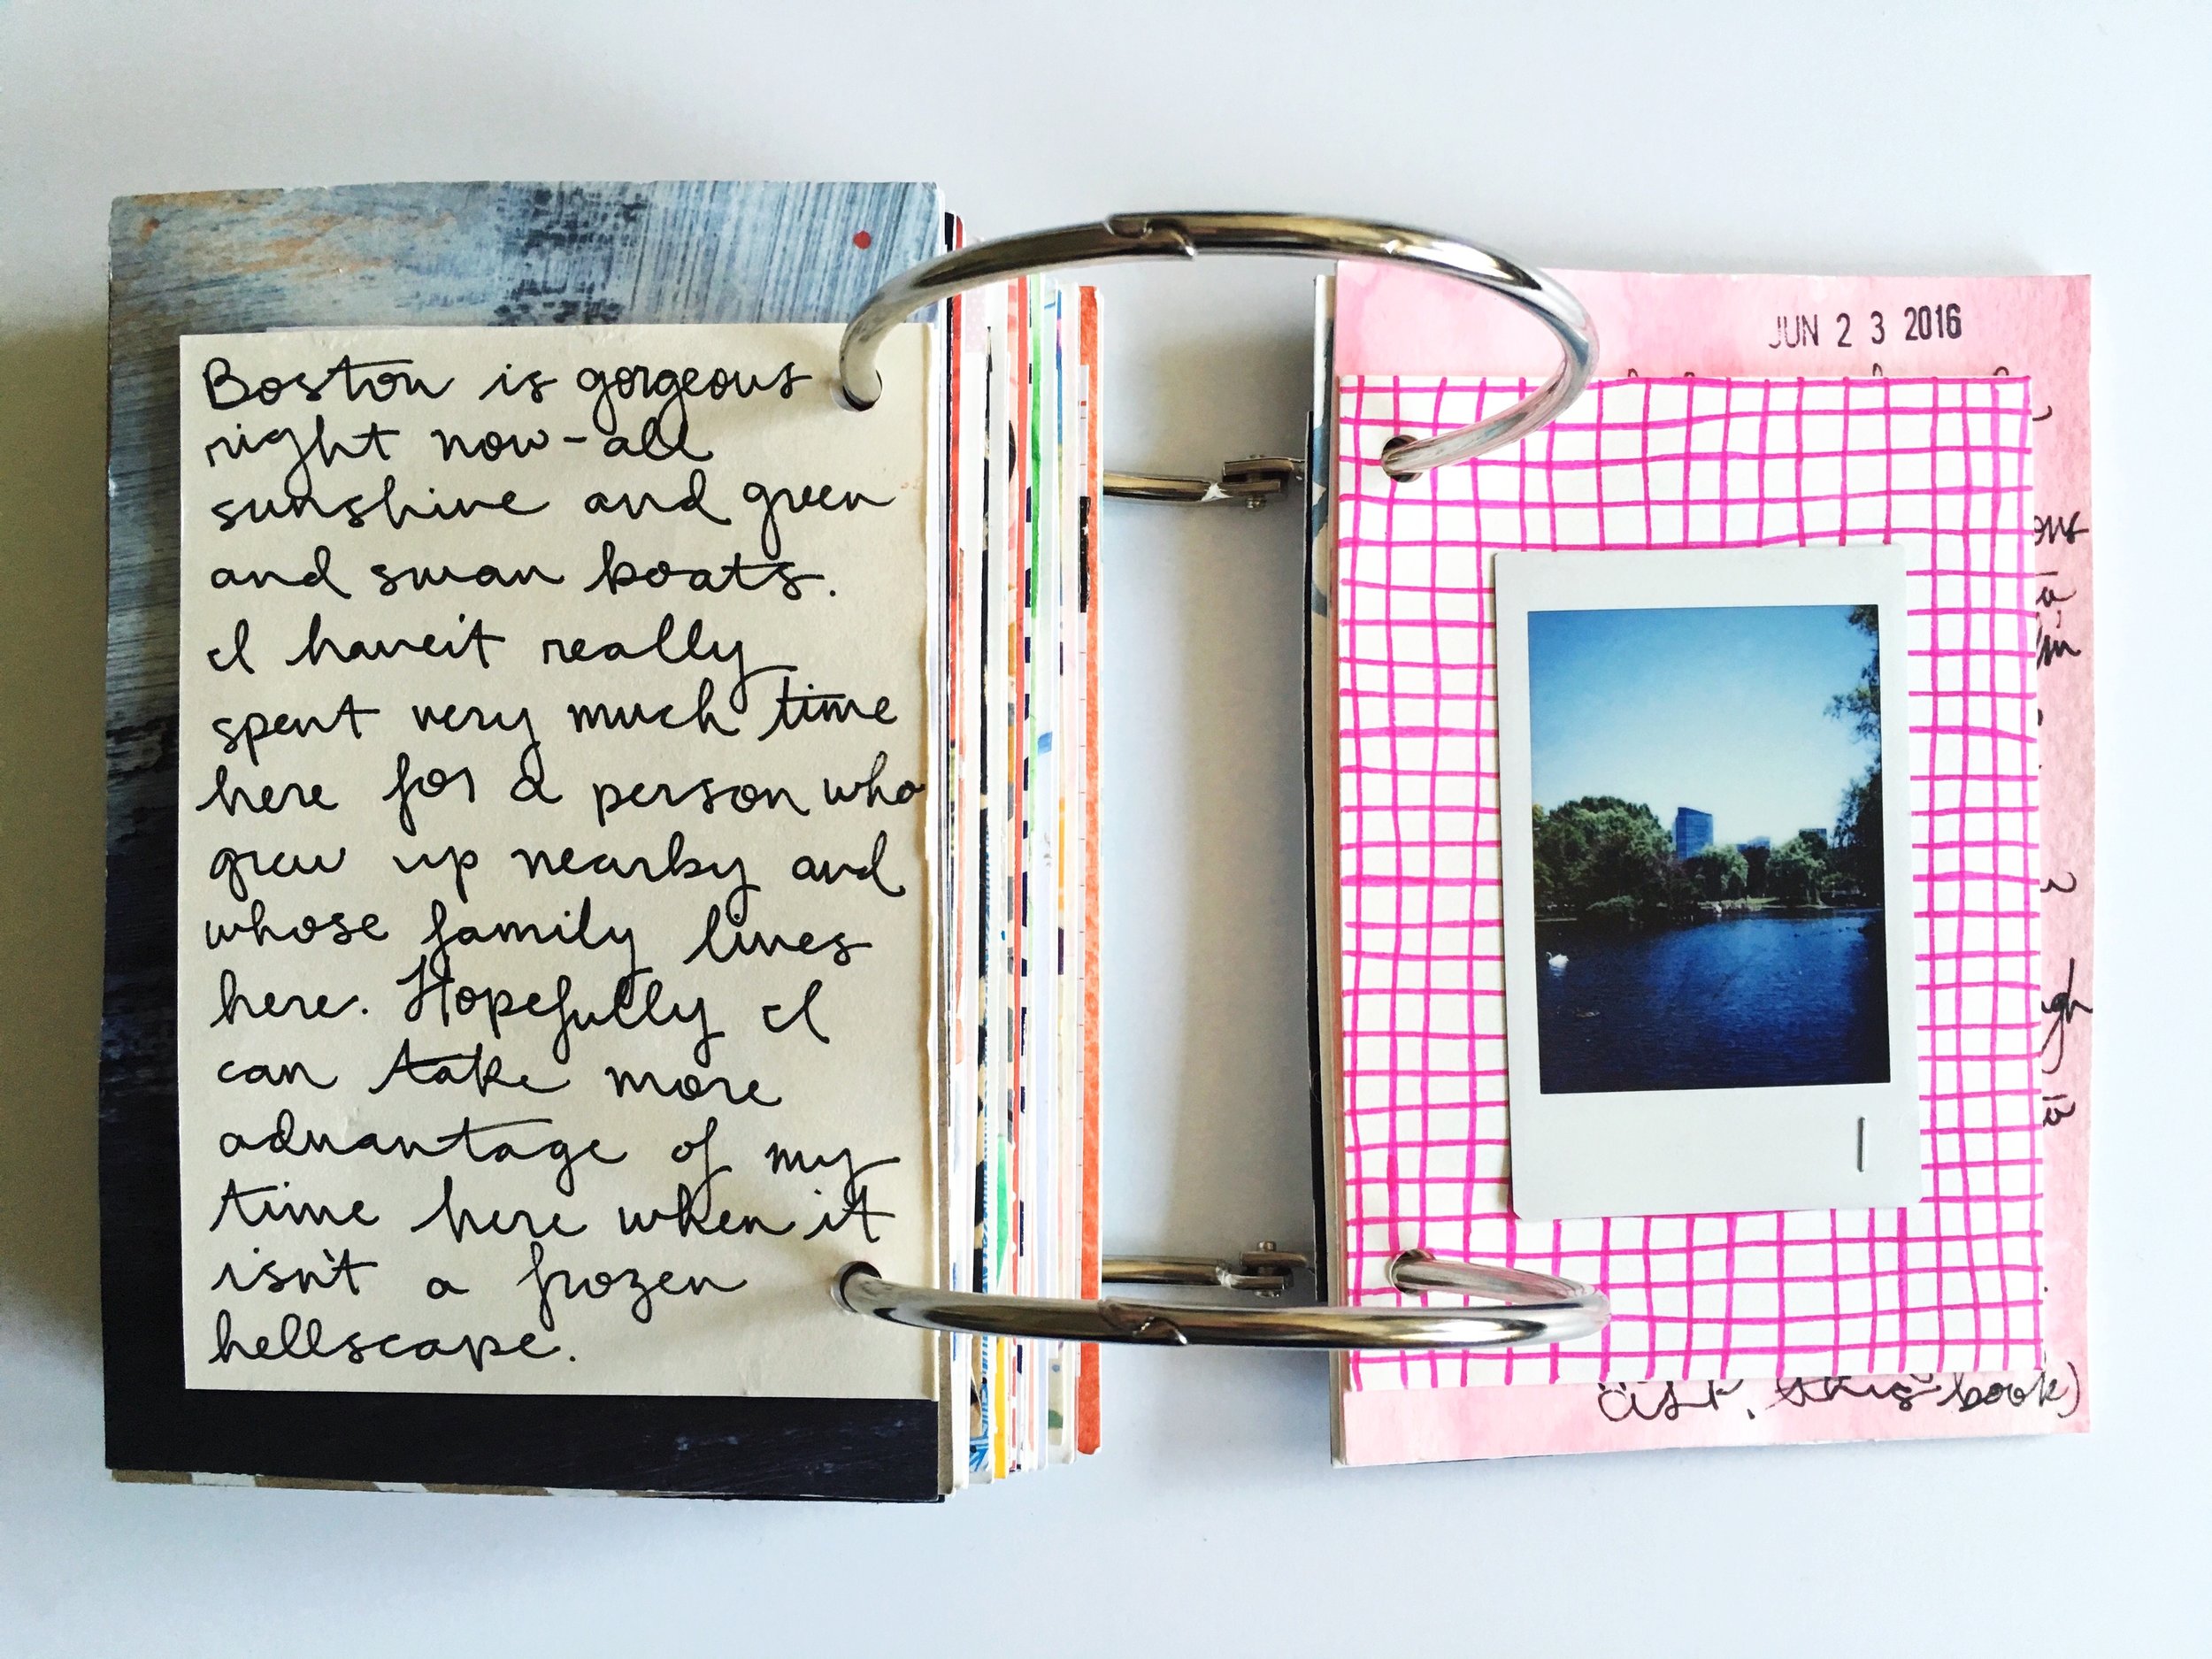 Boston is gorgeous
right now - all
sunshine and green
and swan boats.
I haven't really
spent very much time
here for a person who
grew up nearby and
whose family lives
here. Hopefully I
can take more
advantage of my
time here when it
isn't a frozen
hellscape.
JUN 23 2016
this book)